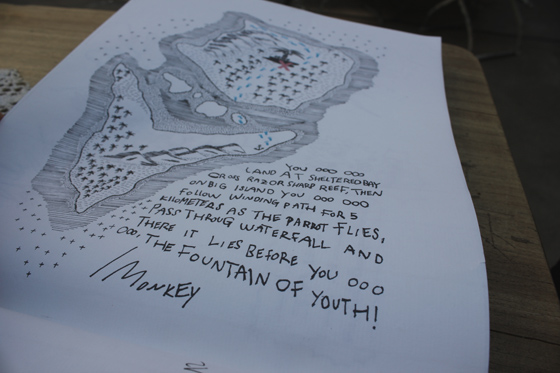 YOU OOO OOO
LAND AT SHELTERED BAY
CROSS RAZOR SHARP REEF, THEN
ON BIG ISLAND YOU OOO OOO
FOLLOW WINDING PATH FOR 5
KILOMETERS AS THE PARROT FLIES,
PASS THROUG WATERFALL AND
THERE IT LIES BEFORE YOU OOO
OO, THE FOUNTAIN OF YOUTH!
/MONKEY